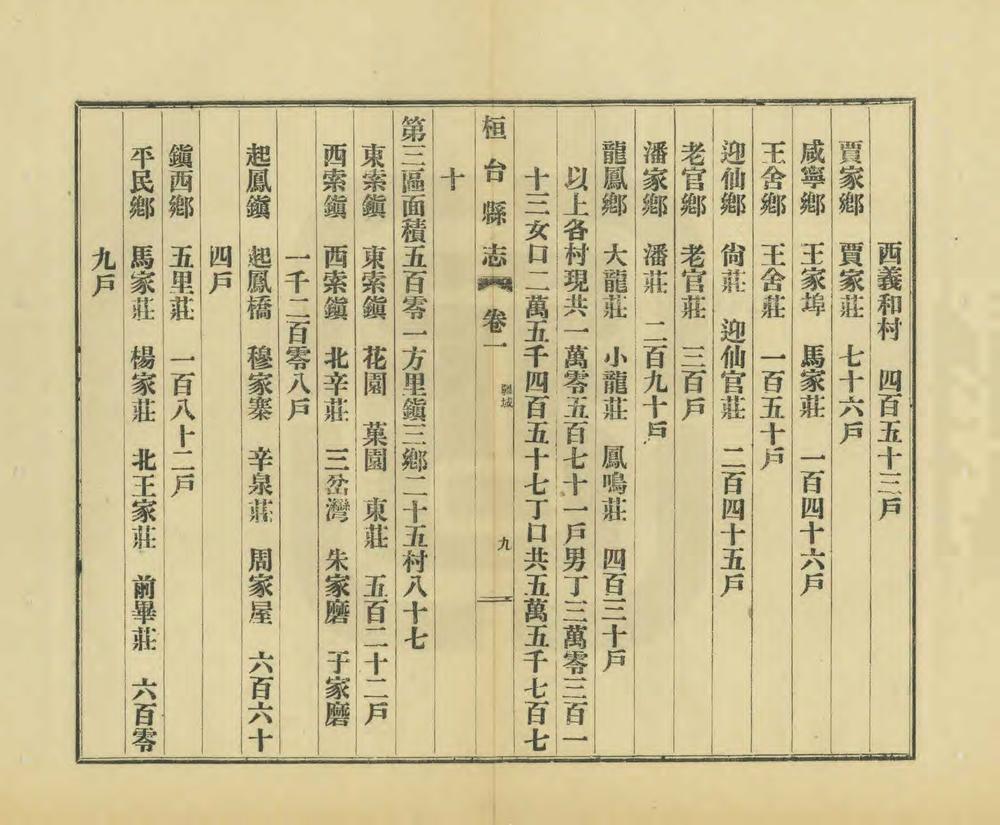 西義和村　四百五十三戶
賈家鄉　賈家莊　七十六戶
咸寧鄉　王家埠　馬家莊　一百四十六戶
王舍鄉　王舍莊　一百五十戶
迎仙鄉　尙莊　迎仙官莊　二百四十五戶
老官鄉　老官莊　三百戶
潘家鄉　潘莊　二百九十戶
龍鳳鄉　大龍莊　小龍莊　鳳鳴莊　四百三十戶
以上各村現共一萬零五百七十一戶男丁三萬零三百一
十三女口二萬五千四百五十七丁口共五萬五千七百七
十
桓台縣志　卷一　疆域　九
第三區面積五百零一方里鎭三鄉二十五村八十七
東索鎭　東索鎭　花園　菓園　東莊　五百二十二戶
西索鎭　西索鎭　北辛莊　三岔灣　朱家磨　于家磨
一千二百零八戶
起鳳鎭　起鳳橋　穆家寨　辛泉莊　周家屋　六百六十
四戶
鎭西鄉　五里莊　一百八十二戶
平民鄉　馬家莊　楊家莊　北王家莊　前畢莊　六百零
九戶